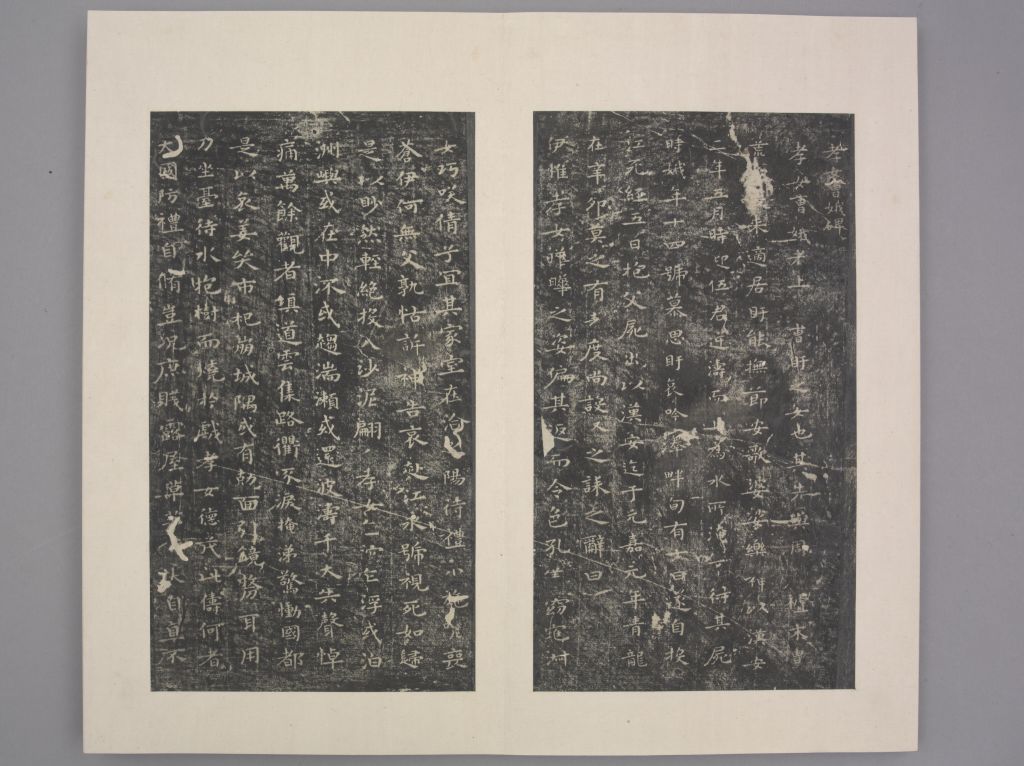 孝女曹娥碑
孝女曹娥者上虞曹盱之女也其先與周同祖末胄
荒 適居盱能撫節安歌婆娑樂神以漢安
二年五月時迎伍君逆濤而上為水所淹不得其屍
時娥年十四號慕思盱哀吟澤畔旬有七日遂自投
江死經五日抱父屍出以漢安迄于元嘉元年青龍
在辛卯莫之有表度尚設祭之誄之辭曰
伊惟孝女曄曄之姿偏其返而令色孔儀窈窕淑
女巧笑倩兮宜其家室在洽之陽待禮未施嗟喪
蒼伊何無父孰怙訴神告哀赴江永號視死如歸
是以眇然輕絕投入沙泥翩翩孝女乍沉乍浮或泊
洲嶼或在中流或趨湍瀨或還波濤千夫失聲悼
痛萬餘觀者填道雲集路衢泣淚掩涕驚慟國都
是以哀姜哭市杞崩城隅或有剋面引鏡剺耳用
刀坐臺待水抱樹而燒於戲孝女德茂此儔何者
大國防禮自脩豈況庶賤露屋草茅不扶自直不